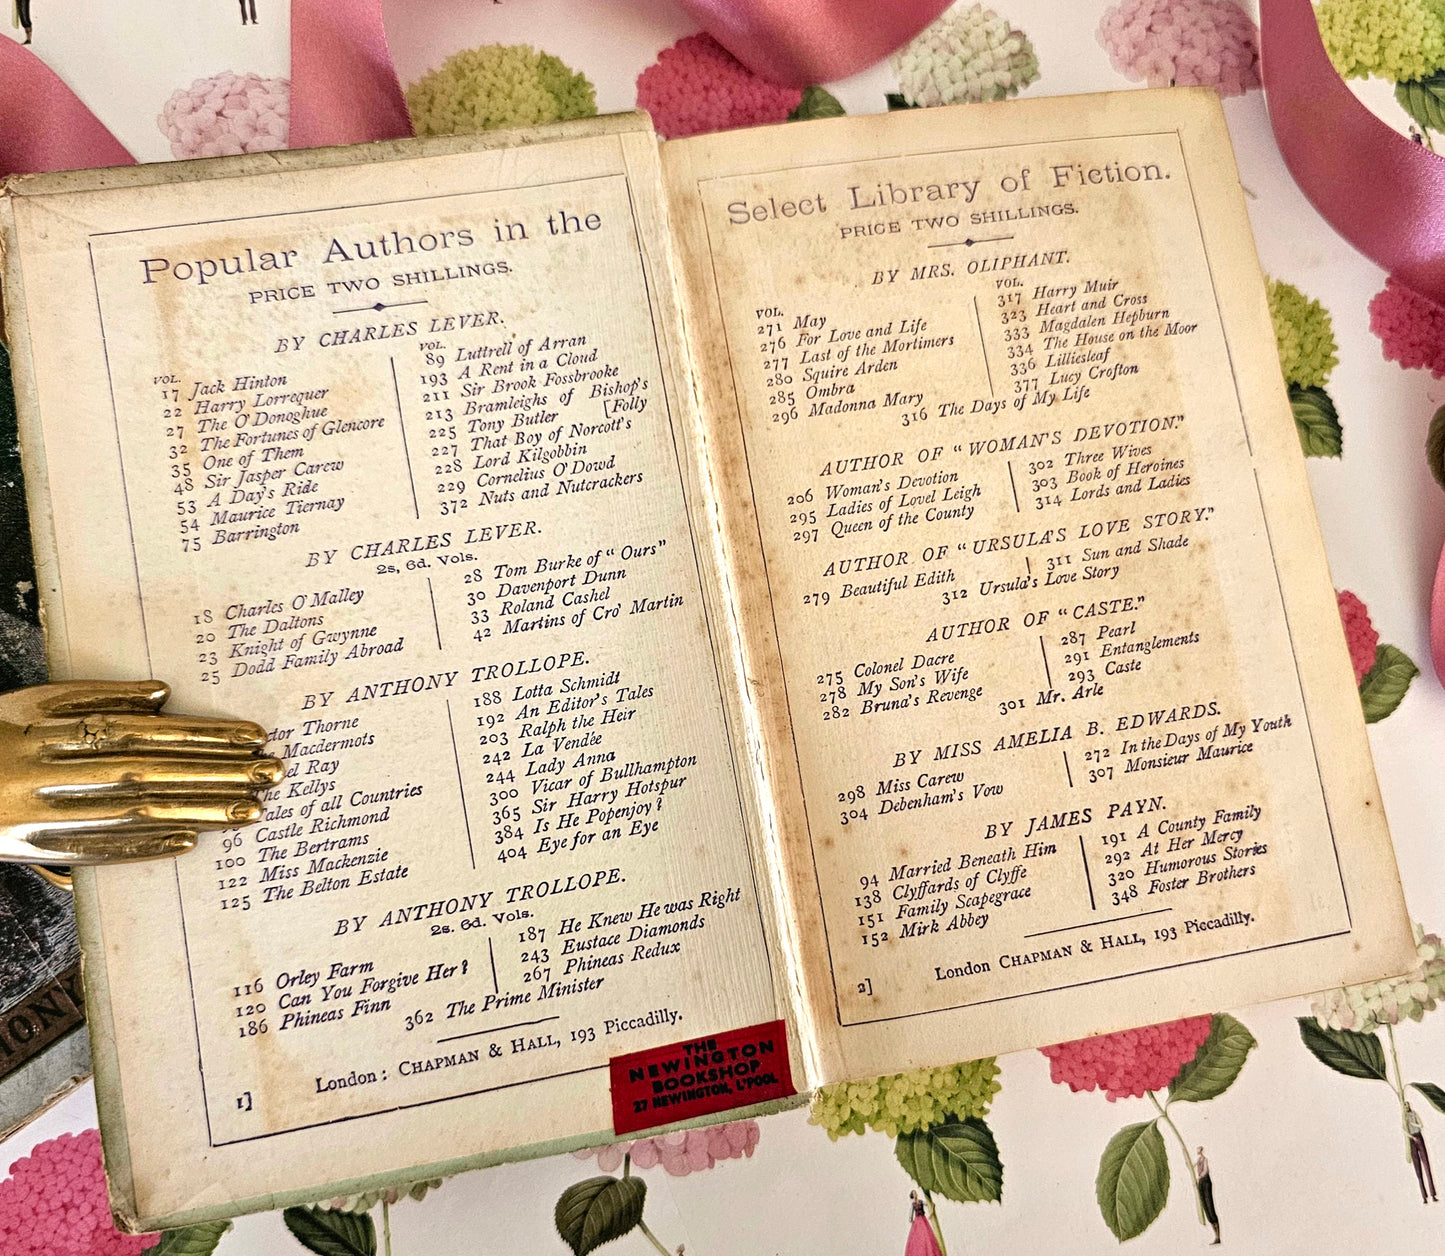 Popular Authors in the
PRICE TWO SHILLINGS.
BY CHARLES LEVER.
VOL.
17 Jack Hinton
22 Harry Lorrequer
27 The O'Donoghue
32 The Fortunes of Glencore
35 One of Them
48 Sir Jasper Carew
53 A Day's Ride
54 Maurice Tiernay
75 Barrington
VOL.
89 Luttrell of Arran
193 A Rent in a Cloud
211 Sir Brook Fossbrooke
213 Bramleighs of Bishop's
225 Tony Butler [Folly
227 That Boy of Norcott's
228 Lord Kilgobbin
229 Cornelius O'Dowd
372 Nuts and Nutcrackers
BY CHARLES LEVER.
2s, 6d. Vols.
18 Charles O'Malley
20 The Daltons
23 Knight of Gwynne
25 Dodd Family Abroad
28 Tom Burke of "Ours"
30 Davenport Dunn
33 Roland Cashel
42 Martins of Cro' Martin
BY ANTHONY TROLLOPE.
Thorne
Macdermots
Ray
The Kellys
Tales of all Countries
96 Castle Richmond
100 The Bertrams
122 Miss Mackenzie
125 The Belton Estate
188 Lotta Schmidt
192 An Editor's Tales
203 Ralph the Heir
242 La Vendée
244 Lady Anna
300 Vicar of Bullhampton
365 Sir Harry Hotspur
384 Is He Popenjoy?
404 Eye for an Eye
BY ANTHONY TROLLOPE.
2s. 6d. Vols.
116 Orley Farm
120 Can You Forgive Her?
186 Phineas Finn
187 He Knew He was Right
243 Eustace Diamonds
267 Phineas Redux
362 The Prime Minister
London: CHAPMAN & HALL, 193 Piccadilly.
1]
THE
NEWINGTON
BOOKSHOP
27 NEWINGTON, L'POOL
Select Library of Fiction.
PRICE TWO SHILLINGS.
BY MRS. OLIPHANT.
VOL.
271 May
276 For Love and Life
277 Last of the Mortimers
280 Squire Arden
285 Ombra
296 Madonna Mary
VOL.
317 Harry Muir
323 Heart and Cross
333 Magdalen Hepburn
334 The House on the Moor
336 Lilliesleaf
377 Lucy Crofton
316 The Days of My Life
AUTHOR OF "WOMAN'S DEVOTION."
206 Woman's Devotion
295 Ladies of Lovel Leigh
297 Queen of the County
302 Three Wives
303 Book of Heroines
314 Lords and Ladies
AUTHOR OF "URSULA'S LOVE STORY."
279 Beautiful Edith
311 Sun and Shade
312 Ursula's Love Story
AUTHOR OF "CASTE."
275 Colonel Dacre
278 My Son's Wife
282 Bruna's Revenge
287 Pearl
291 Entanglements
293 Caste
301 Mr. Arle
BY MISS AMELIA B. EDWARDS.
298 Miss Carew
304 Debenham's Vow
272 In the Days of My Youth
307 Monsieur Maurice
BY JAMES PAYN.
94 Married Beneath Him
138 Clyffards of Clyffe
151 Family Scapegrace
152 Mirk Abbey
191 A County Family
292 At Her Mercy
320 Humorous Stories
348 Foster Brothers
London CHAPMAN & HALL, 193 Piccadilly.
2]